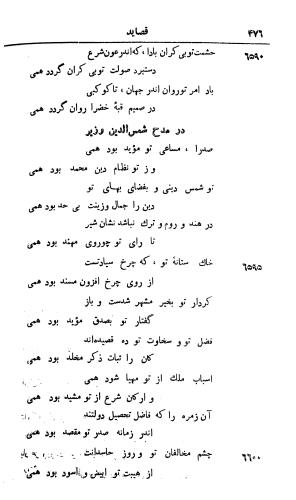 ۴۷۶
قصاید
۶۵۹۰
حشمت توبی کران بادا، که اندر عون شرع
دستبرد صولت توبی کران گردد همی
باد امر توروان اندر جهان، تا کوکبی
در صمیم قبهٔ خضرا روان گردد همی
در مدح شمس‌الدین وزیر
صدرا، مساعی تو مؤید بود همی
وز تو نظام دین محمد بود همی
تو شمس دینی و بفضای بهای تو
دین را جمال وزینت بی حد بود همی
در هند و روم و ترك نباشد نشان شر
تا رای تو چوروی مهند بود همی
۶۵۹۵
خاك ستانهٔ تو، که چرخ سیادتست
از روی چرخ افزون مسند بود همی
کردار تو بخیر مشهر شدست و باز
گفتار تو بصدق مؤید بود همی
فضل تو و سخاوت تو ده قصیده‌اند
کان را ثبات ذکر مخلد بود همی
اسباب ملك از تو مهیا شود همی
و ارکان شرع از تو مشید بود همی
آن زمره را که فاضل تحصیل دولتند
اندر زمانه صدر تو مقصد بود همی
۶۶۰۰
چشم مخالفان تو و روز حاسدانت
از هیبت تو ابیض و اسود بود همی